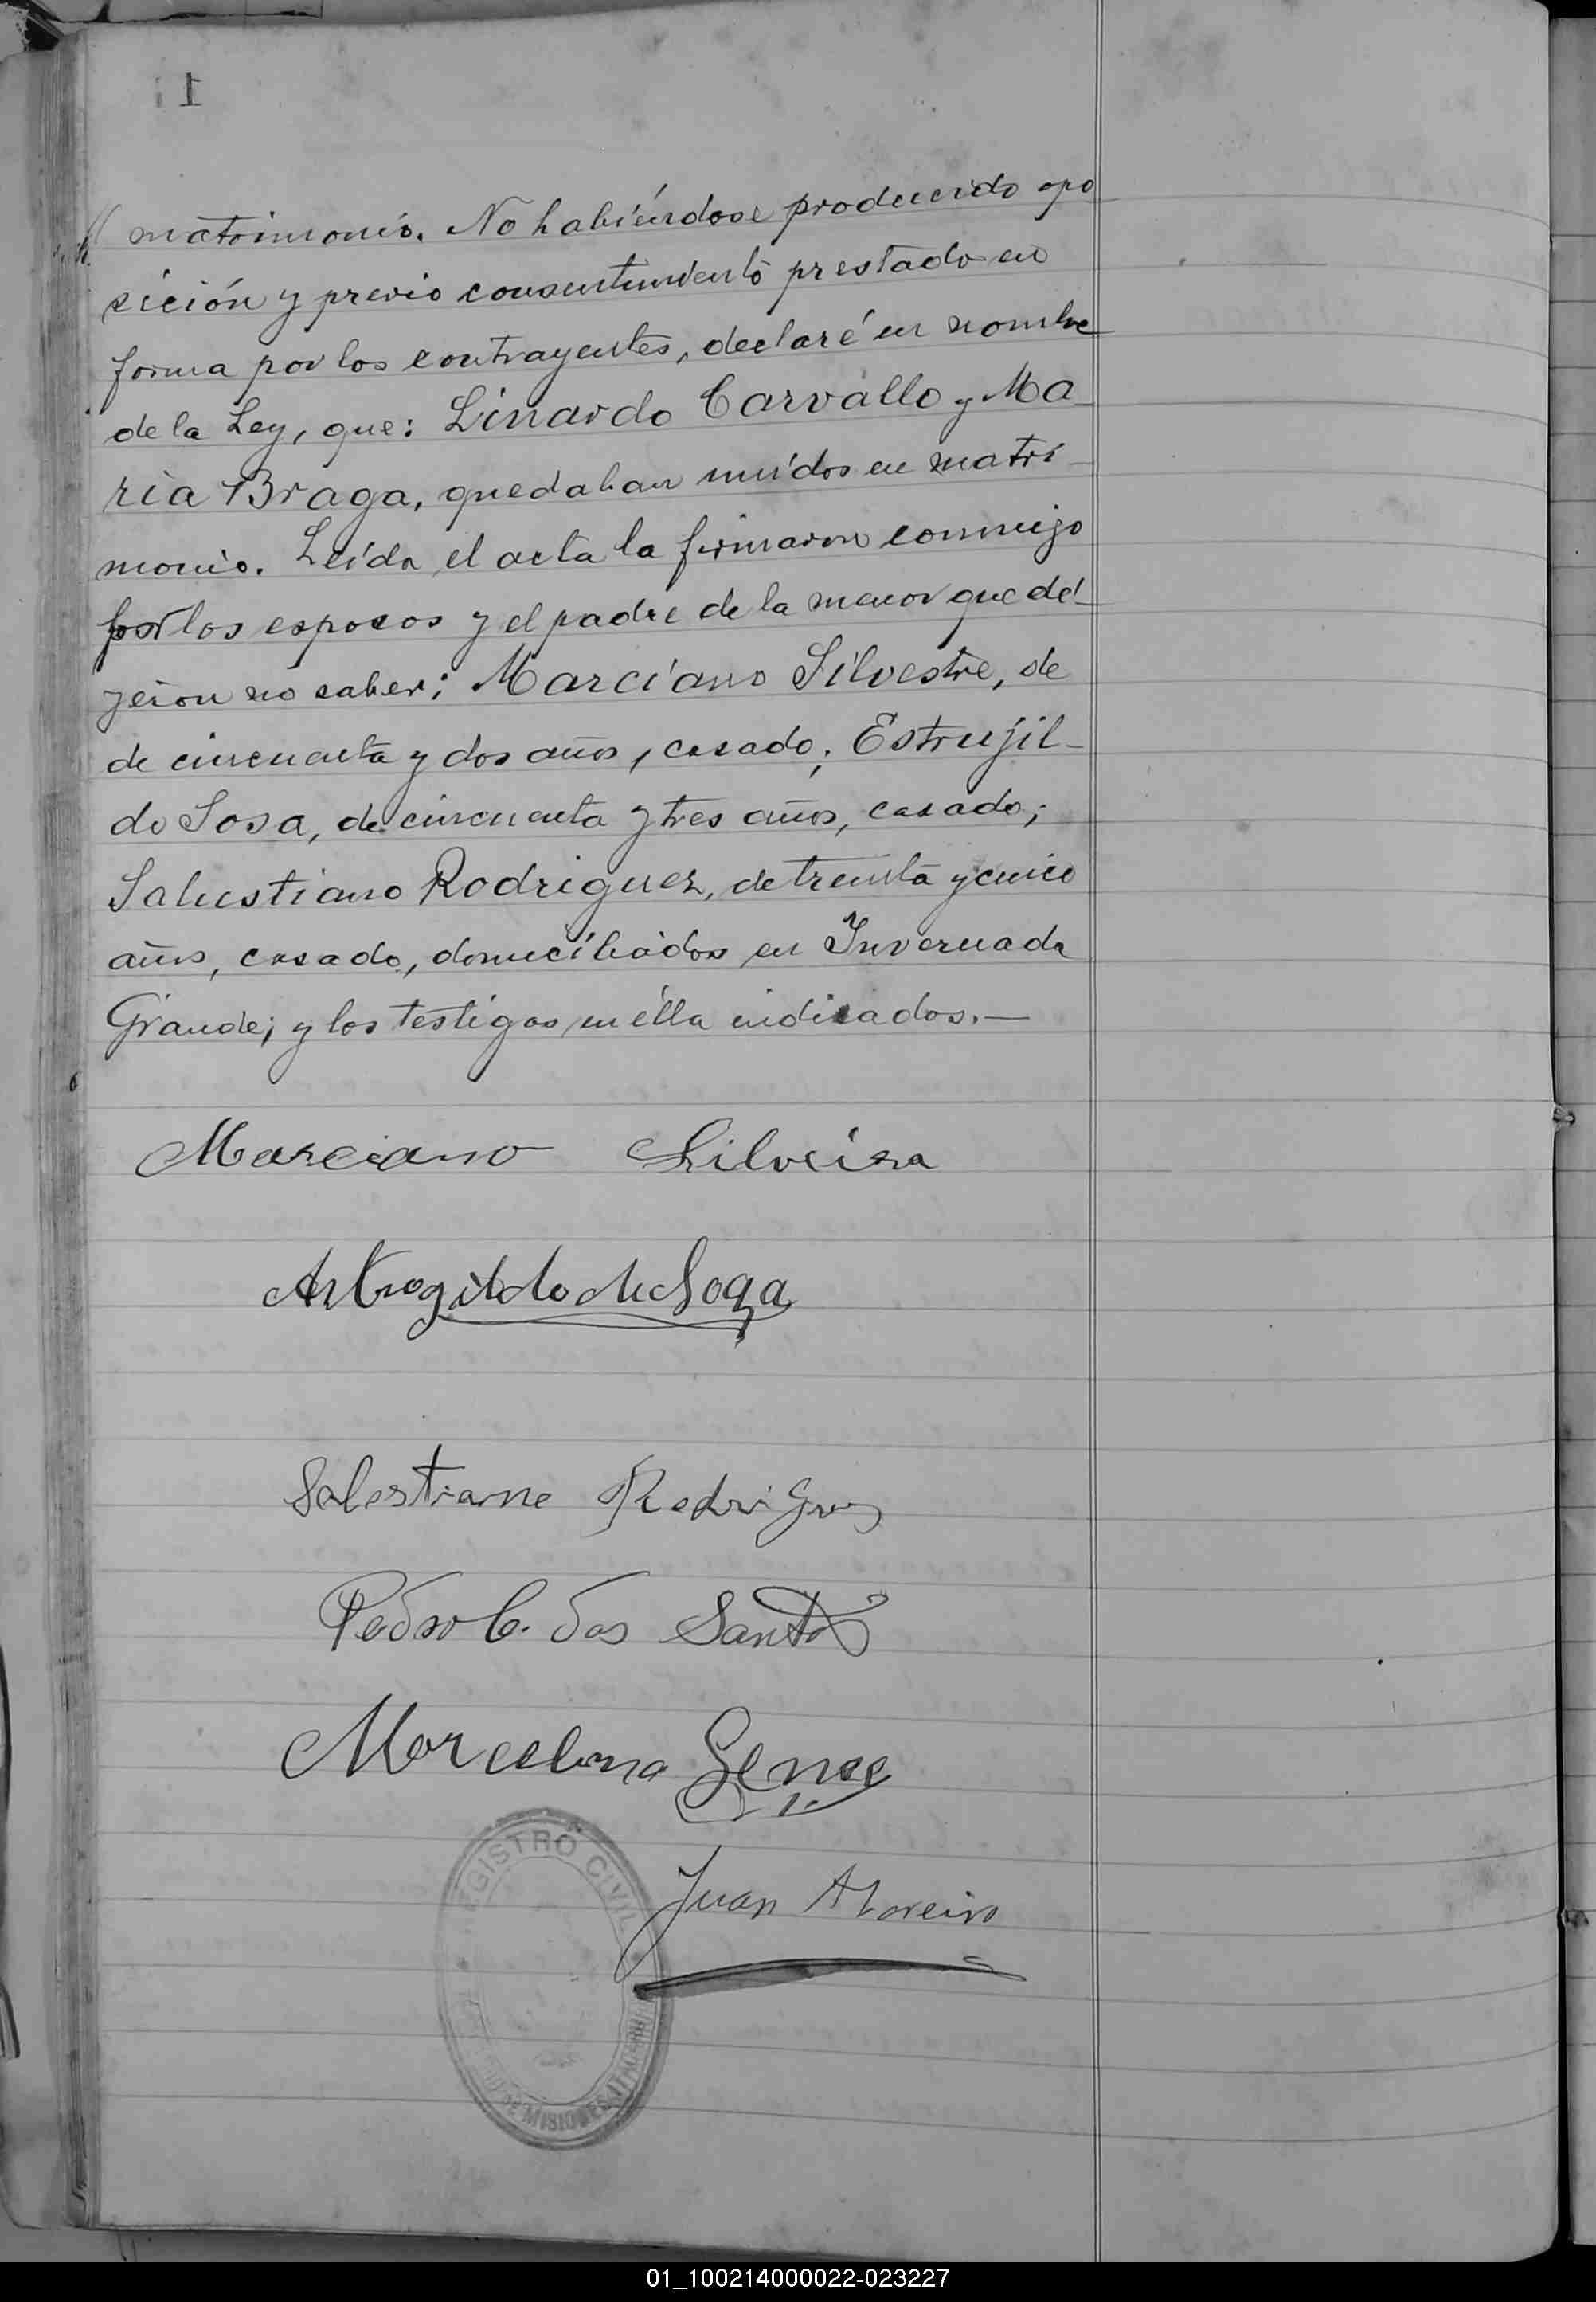 matrimonio. No habiéndose producido opo
sición y previo consentimiento prestado en
forma por los contrayentes, declaré en nombre
de la Ley, que: Linardo Carvallo y Ma
ria Braga, quedaban unidos en matri
monio. Leída el acta la firmaron conmigo
por los esposos y el padre de la menor que de
jeron no saber: Marciano Silvestre, de
de cincuenta y dos años, casado; Estrujil-
do Sosa, de cincuenta y tres años, casado;
Salustiano Rodriguez, de treinta y cinco
años, casado, domiciliados en Invernada
Grande; y los testigos en élla indicados.—
Marciano Silveira
Astrogildo de Soza
Salestiane Redrigues
Pedro C. dos Santos
Marcelino
Juan Moreiro
REGISTRO CIVIL
DE MISIONES ITACARUARÉ
01_100214000022-023227